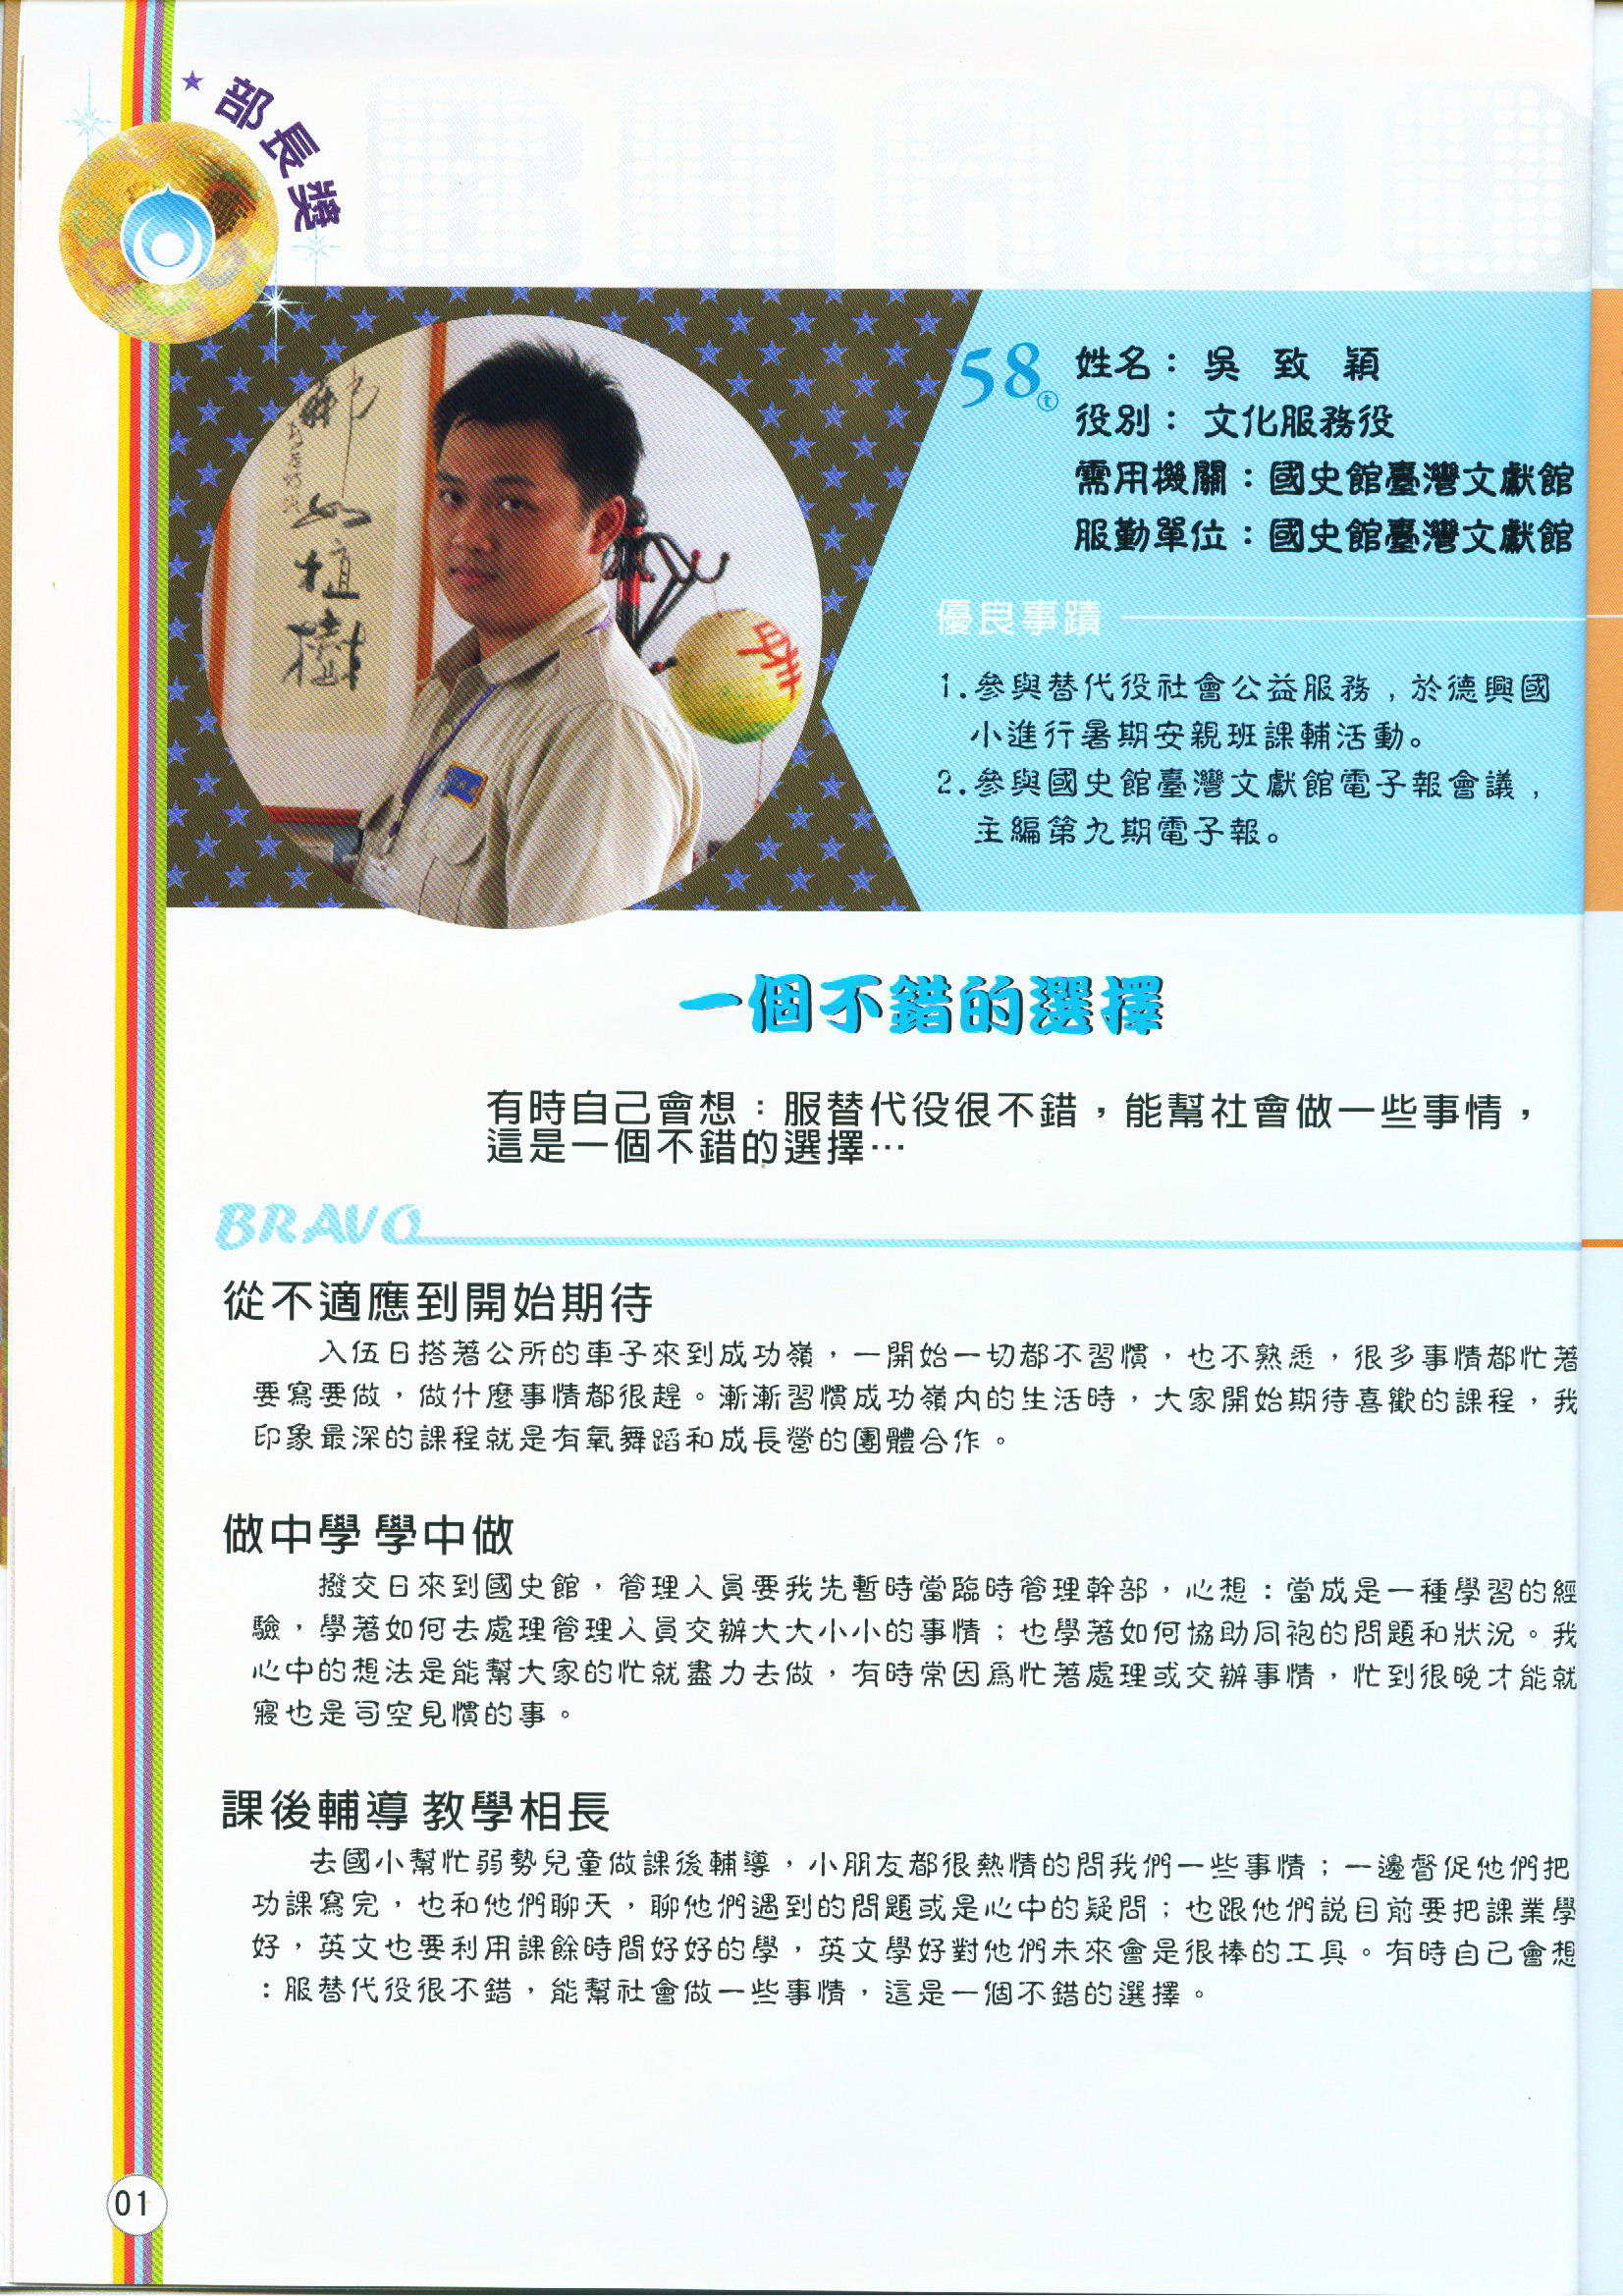 部長獎
如植樹
58t
姓名：吳 致 穎
役別：文化服務役
需用機關：國史館臺灣文獻館
服勤單位：國史館臺灣文獻館
優良事蹟
1.參與替代役社會公益服務，於德興國
小進行暑期安親班課輔活動。
2.參與國史館臺灣文獻館電子報會議，
主編第九期電子報。
一個不錯的選擇
有時自己會想：服替代役很不錯，能幫社會做一些事情，
這是一個不錯的選擇…
BRAVO
從不適應到開始期待
入伍日搭著公所的車子來到成功嶺，一開始一切都不習慣，也不熟悉，很多事情都忙著
要寫要做，做什麼事情都很趕。漸漸習慣成功嶺內的生活時，大家開始期待喜歡的課程，我
印象最深的課程就是有氧舞蹈和成長營的團體合作。
做中學 學中做
撥交日來到國史館，管理人員要我先暫時當臨時管理幹部，心想：當成是一種學習的經
驗，學著如何去處理管理人員交辦大大小小的事情；也學著如何協助同袍的問題和狀況。我
心中的想法是能幫大家的忙就盡力去做，有時常因為忙著處理或交辦事情，忙到很晚才能就
寢也是司空見慣的事。
課後輔導 教學相長
去國小幫忙弱勢兒童做課後輔導，小朋友都很熱情的問我們一些事情；一邊督促他們把
功課寫完，也和他們聊天，聊他們遇到的問題或是心中的疑問；也跟他們說目前要把課業學
好，英文也要利用課餘時間好好的學，英文學好對他們未來會是很棒的工具。有時自己會想
：服替代役很不錯，能幫社會做一些事情，這是一個不錯的選擇。
01